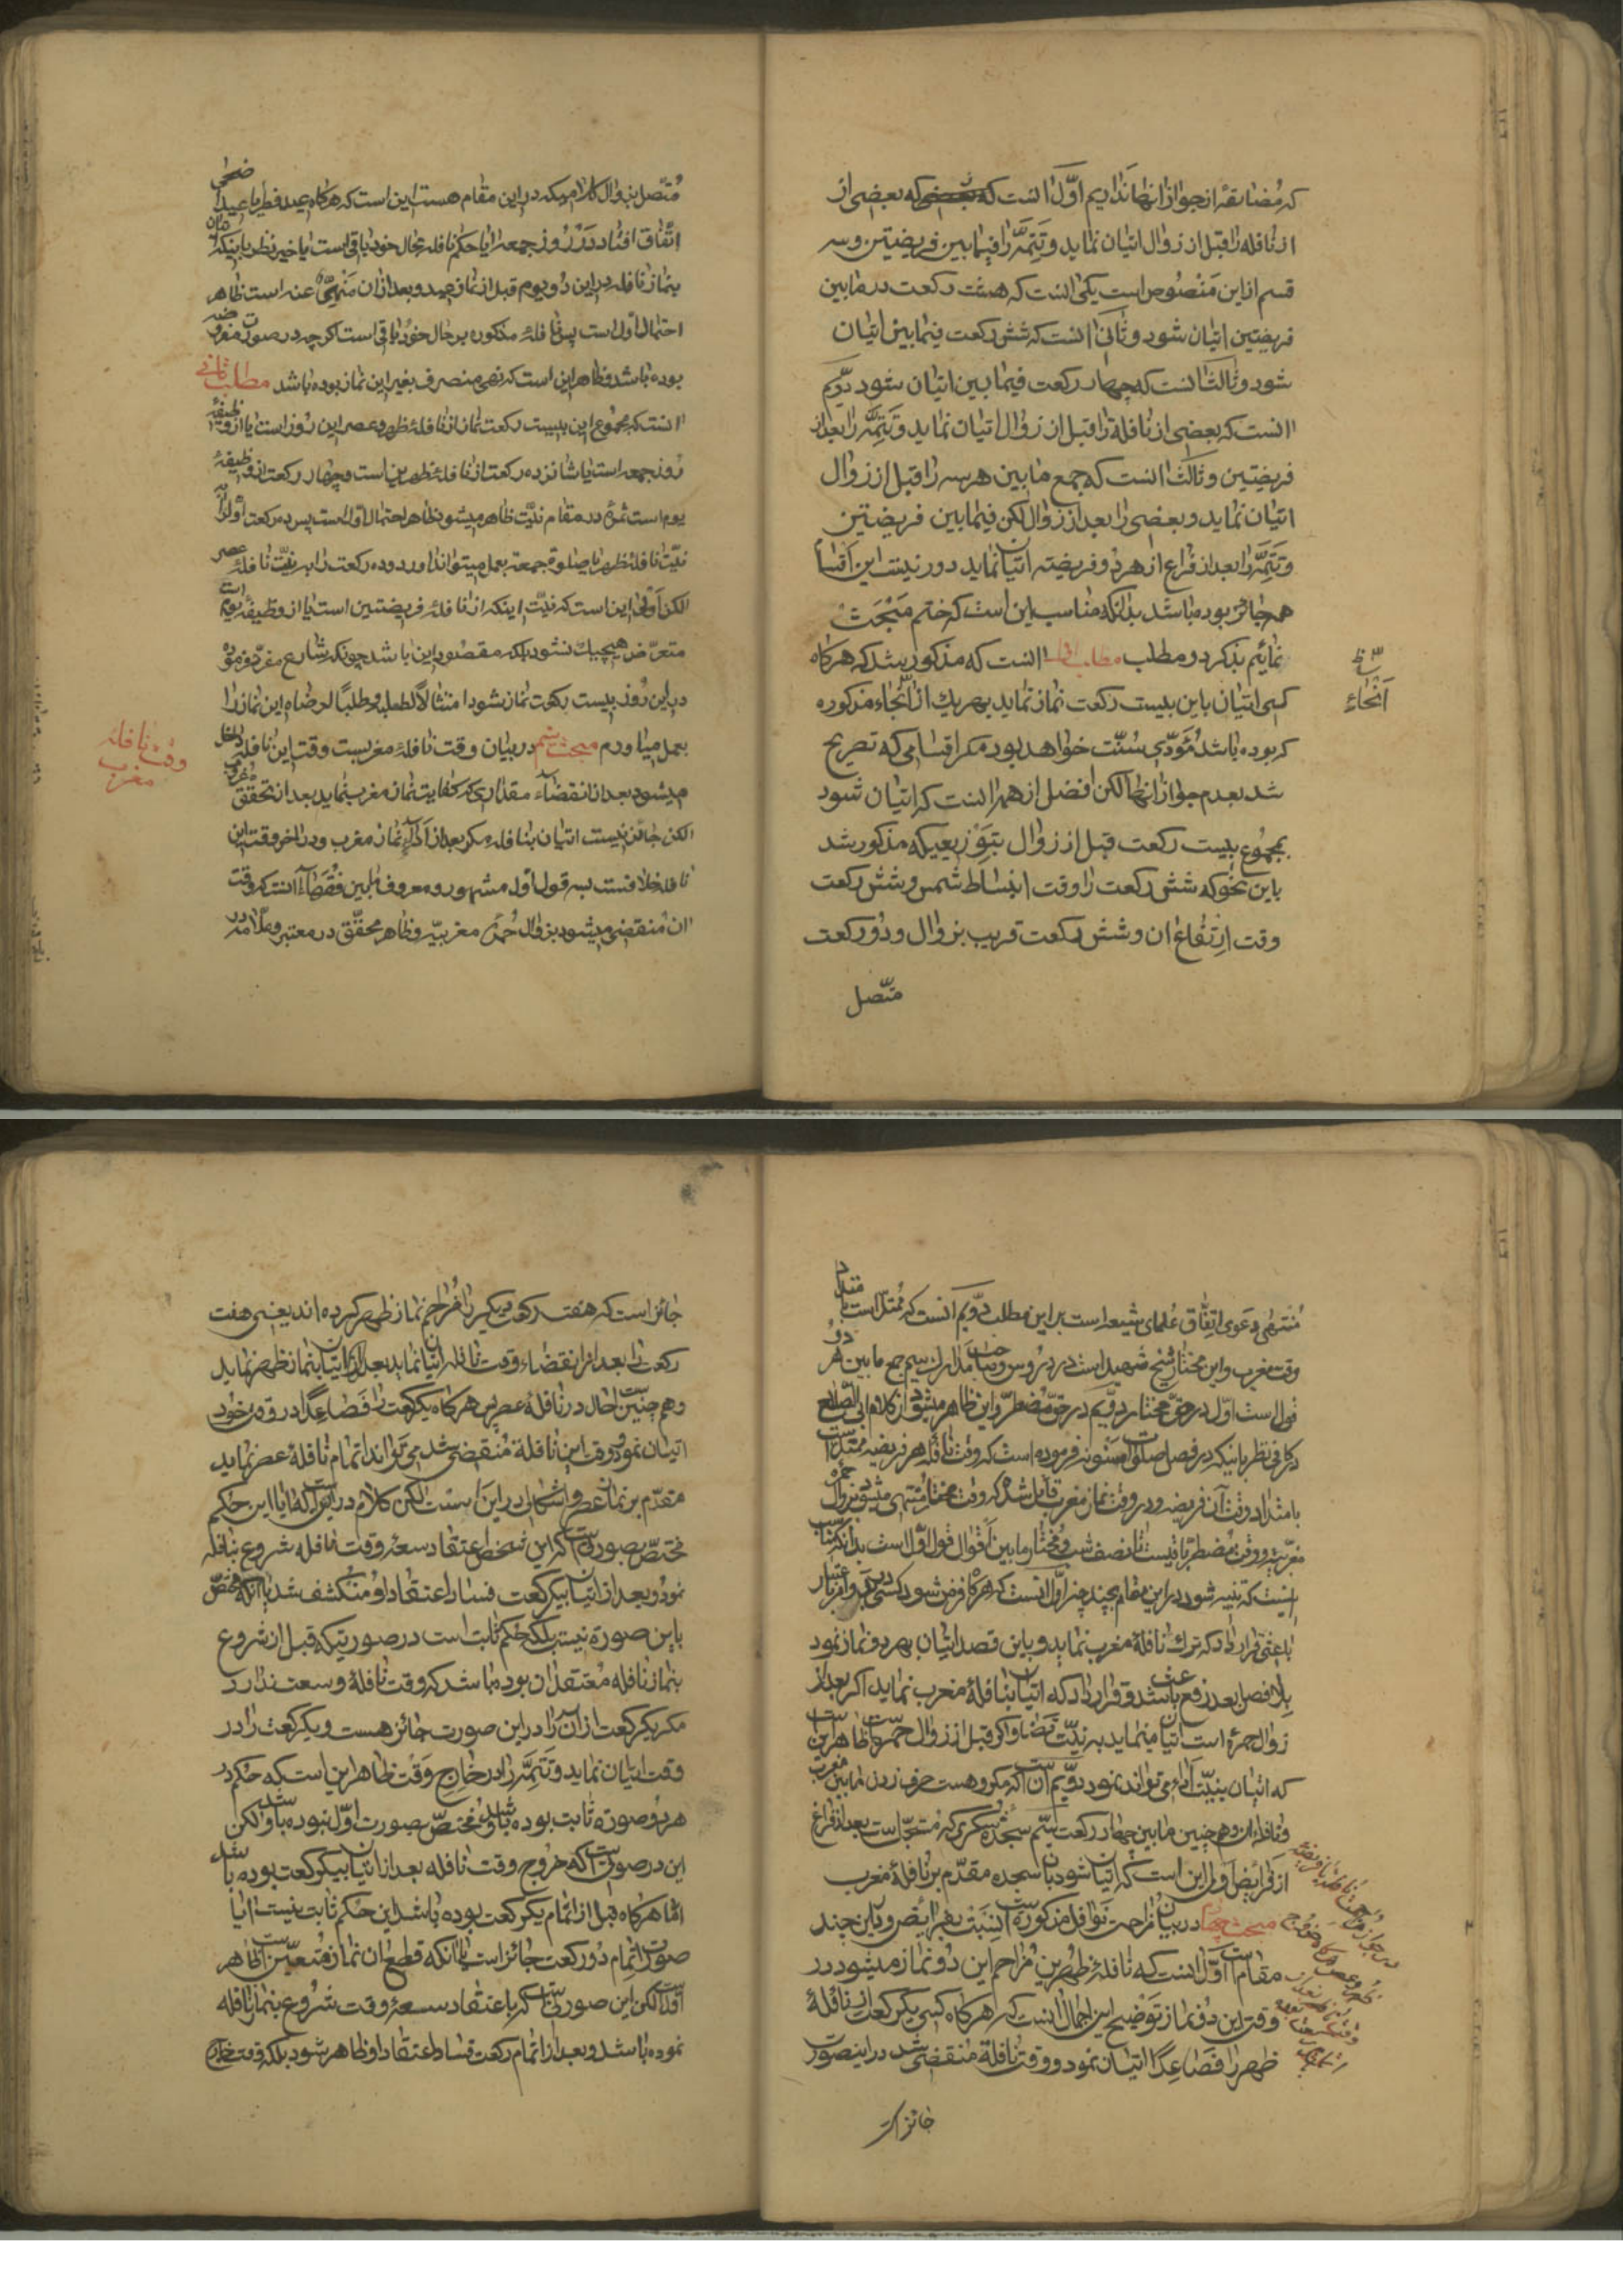 که مضایقه از جواز انها نداریم اوّل انست که بعضی که بعضی از
از نافله را قبل از زوال اتیان نماید و تتمّه را فیما بین فریضتین و سه
قسم از این منصوص است یکی انست که هشت رکعت در مابین
فریضتین اتیان شود و ثانی انست که شش رکعت فیمابین اتیان
شود و ثالث انست که چهار رکعت فیما بین اتیان شود دویّم
انست که بعضی از نافلة را قبل از زوال اتیان نماید و تتمّه را بعد از
فریضتین و ثالث انست که جمع مابین هر سه را قبل از زوال
اتیان نماید و بعضی را بعد از زوال لکن فیمابین فریضتین
و تتمّه را بعد از فراغ از هر دو فریضه اتیان نماید دور نیست این اقسام
همه جائز بوده باشد بدانکه مناسب این است که ختم مبحث
نمائیم بذکر دو مطلب مطلب اوّل انست که مذکور شد که هرکاه
کسی اتیان باین بیست رکعت نماز نماید بهر یك از انحاء مذکوره
که بوده باشد مؤدّی سُنّت خواهد بود مکر اقسامی که تصریح
شد بعدم جواز انها لکن افضل از همه انست که اتیان شود
بمجموع بیست رکعت قبل از زوال بتوزیعیکه مذکور شد
باین نحو که شش رکعت را وقت انبساط شمس و شش رکعت
وقت ارتفاع ان و شش رکعت قریب بزوال و دو رکعت
متّصل
انحاء
متّصل بزوال کلامیکه در این مقام هست این است که هرکاه عید فطر یا عید اضحی
اتّفاق افتاد در روز جمعه ایا حکم نافله بحال خود باقی است یا خیر نظر باینکه اتیان
بنماز نافله در این دو یوم قبل از نماز عید و بعد از ان منهیّ عنه است ظاهر
احتمال اوّل است پس نافلهٔ مذکوره بر حال خود باقی است کرچه در صورت مفروضه
بوده باشد و ظاهر این است که نهی منصرف بغیر این نماز بوده باشد مطلب ثانی
انست که مجموع این بیست رکعت نماز از نافلهٔ ظهر و عصر این روز است یا از وظیفهٔ
روز جمعه است یا شانزده رکعت از نافلهٔ ظهرین است و چهار رکعت از وظیفهٔ
یوم است ثمره در مقام نیّت ظاهر میشود ظاهر احتمال اوّل است پس ده رکعت اوّل را به
نیّت نافلهٔ ظهر یا صلوة جمعه بعمل میتواند اورد و ده رکعت را به نیّت نافلهٔ عصر
لکن اولی این است که نیّت اینکه از نافلهٔ فریضتین است یا از وظیفهٔ یوم است
متعرّض هیچیك نشود بلکه مقصود این باشد چونکه شارع مقرّر فرموده
در این روز بیست رکعت نماز شود امتثالاً لطلبه و طلباً لرضاه این نماز را
بعمل میاورم مبحث سیّم در بیان وقت نافلهٔ مغربست وقت این نافله داخل
میشود بعد از انقضاء مقداری که کفایت نماز مغرب نماید بعد از تحقّق غروب
لکن جائز نیست اتیان بنافله مکر بعد از اداء نماز مغرب و در اخر وقت این
نافله خلافست بسه قول اوّل مشهور و معروف مابین فقهاء انست که وقت
ان منقضی میشود بزوال حمرهٔ مغربیّه و ظاهر محقّق در معتبر و علّامه در
وقت نافلهٔ
مغرب
منتهی دعوی اتّفاق علمای شیعه است بر این مطلب دویّم انست که ممتدّ است بامتداد
وقت مغرب و این مختار شیخ شهید است در دروس و صاحب مدارك سیّم جمع مابین هر دو
قول است اوّل در حقّ مختار و دویّم در حقّ مضطرّ و این ظاهر میشود از کلام ابی الصلاح
در کافی نظر باینکه در فصل صلوات مسنونه فرموده است که وقت نافلهٔ هر فریضه ممتدّ است
بامتداد وقت آن فریضه و در وقت نماز مغرب قائل شده که وقت مختار منتهی میشود بزوال حمرهٔ
مغربیّه و وقت مضطرّ باقیست تا نصف شب و مختار مابین اقوال قول اوّل است بدانکه مناسب
اینست که تنبیه شود در این مقام بچند چیز اوّل انست که هرکاه فرض شود کسی
باعثی قرار داد که ترك نافلهٔ مغرب نماید و باین قصد اتیان بهر دو نماز نمود
بلا فصل بعد رفع باعث شد و قرار داد که اتیان بنافلهٔ مغرب نماید اکر بعد از
زوال حمره است اتیان مینماید به نیّت قضا و اکر قبل از زوال حمره است ظاهر این است
که اتیان بنیّت اداء می تواند نمود دویّم ان است که مکروهست حرف زدن مابین مغرب
و نافلهٔ ان و هم چنین مابین چهار رکعت سیّم سجدهٔ شکری که مستحبّ است بعد از فراغ
از فرائض اولی این است که اتیان شود بان سجده مقدّم بر نافلهٔ مغرب
مبحث چهارم در بیان مزاحمت نوافل مذکوره است بنسبت بفرائض و باین چند
مقام است اوّل انست که نافلهٔ ظهرین مزاحم این دو نماز میشود در
وقت این دو نماز توضیح این اجمال انست که هرکاه کسی یکرکعت از نافلهٔ
ظهر را فصاعداً اتیان نمود و وقت نافلة منقضی شد در اینصورت
جائز است
جائز است که هفت رکعت دیکر را مزاحم نماز ظهر کرده اند یعنی هفت
رکعت را بعد از انقضاء وقت نافله اتیان نماید بعد از ان اتیان بنماز ظهر نماید
و هم چنین است حال در نافلهٔ عصر پس هرکاه یکرکعت را فصاعداً در وقت خود
اتیان نمود و وقت این نافلة منقضی شد می تواند اتمام نافلهٔ عصر نماید
مقدّم بر نماز عصر و اشکال در این نیست لکن کلام در این است که ایا این حکم
مختصّ بصورتی است که این شخص اعتقاد سعهٔ وقت نافله شروع بنافله
نمود و بعد از اتیان بیکرکعت فساد اعتقاد او منکشف شد یا انکه مختصّ
باین صورة نیست بلکه حکم ثابت است در صورتیکه قبل از شروع
بنماز نافله معتقد ان بوده باشد که وقت نافلهٔ وسعت ندارد
مکر یکرکعت از آن را در این صورت جائز هست و یکرکعت را در
وقت اتیان نماید و تتمّه را در خارج وقت ظاهر این است که حکم در
هر دو صورة ثابت بوده باشد و مختصّ بصورت اوّل نبوده باشد و لکن
این در صورتی است که خروج وقت نافله بعد از اتیان بیکرکعت بوده باشد
امّا هرکاه قبل از اتمام یکرکعت بوده باشد این حکم ثابت نیست ایا
صورت اتمام دو رکعت جائز است یا انکه قطع ان نماز متعیّن است ظاهر
اوّل است لکن این صورتی است که باعتقاد سعهٔ وقت شروع بنماز نافله
نموده باشد و بعد از اتمام رکعت فساد اعتقاد او ظاهر شود بلکه وقت خارج